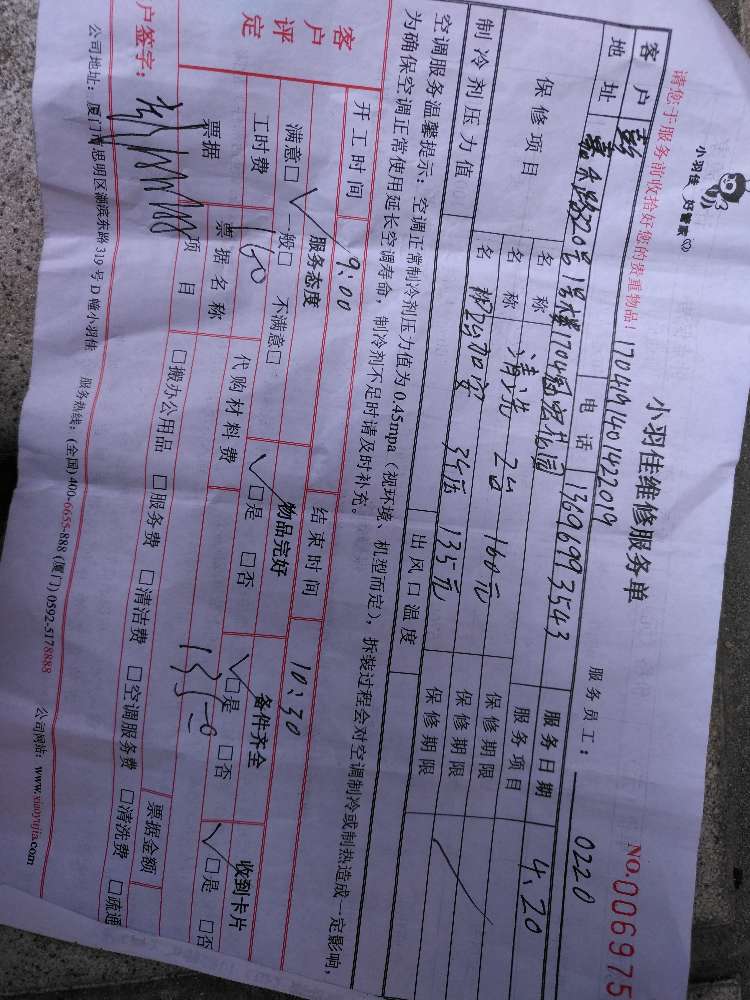 小羽佳 好管家
小羽佳维修服务单
NO.006975
请您于服务前收拾好您的贵重物品！ 1704191401422019 服务员工： 0220
客户 彭 电话 13696993543 服务日期 4.20
地址 嘉禾路320号1号楼1704 花园 服务项目
保修项目 名称 清洗 2台 160元 保修期限
名称 挪台加安 34压 135元 保修期限
制冷剂压力值 出风口温度 保修期限
空调服务温馨提示：空调正常制冷剂压力值为0.45mpa（视环境、机型而定），拆装过程会对空调制冷或制热造成一定影响，
为确保空调正常使用延长空调寿命，制冷剂不足时请及时补充。
客户评定
开工时间 9:00 结束时间 10:30
服务态度 物品完好 备件齐全 收到卡片
满意□ 一般□ 不满意□ □是 □否 □是 □否 □是 □否
工时费 160 代购材料费 135元
票据 票据名称 票据金额
项目 □搬办公用品 □服务费 □清洁费 □空调服务费 □清洗费 □疏通
户签字：
公司地址：厦门市思明区湖滨东路319号D幢小羽佳 服务热线：(全国)400-6655-888 (厦门) 0592-5178888 公司网站：www.xiaoyujia.com